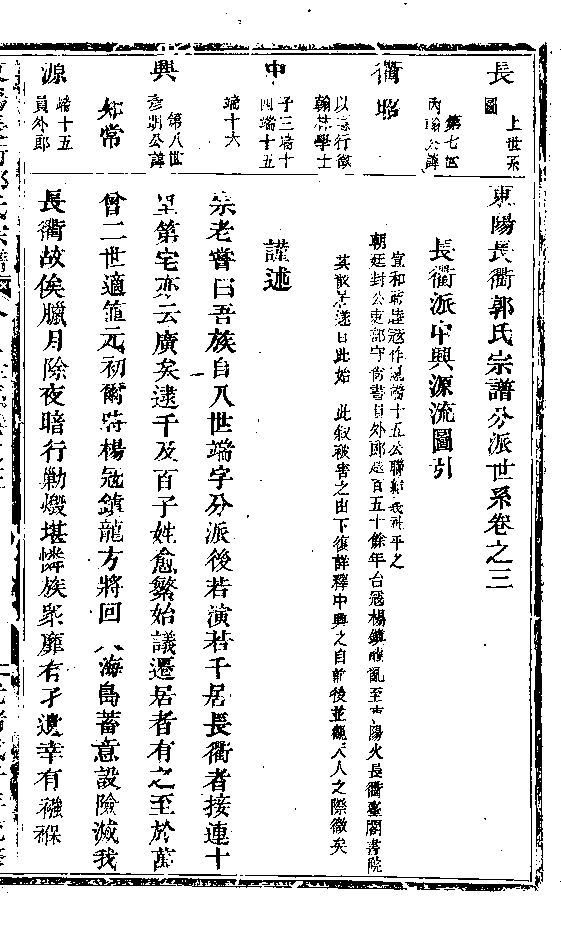 長
圖 上世系
衢
第七世
內翰公諱
昭
以德行徵
翰林學士
中
子三端十
四端十五
端十六
興
第八世
彥明公諱
知常
源
端十五
員外郎
東陽長衢郭氏宗譜分派世系卷之三
長衢派中興源流圖引
宣和睦寇作亂端十五公聯鄉民社平之
朝廷封公吏部守尚書員外郎越百五十餘年台寇楊鎮龍亂至東陽火長衢臺閣書院
其散居遂自此始 此叙被害之由下復詳釋中興之自前後並觀天人之際微矣
謹述
宗老嘗曰吾族自八世端字分派後若演若千居長衢者接連十
里第宅亦云廣矣逮千及百子姓愈繁始議遷居者有之至於萬
曾二世適值元初爾時楊寇鎮龍方將回入海島蓄意設險滅我
長衢故俟臘月除夜暗行勦燬堪憐族眾靡有孑遺幸有襁褓